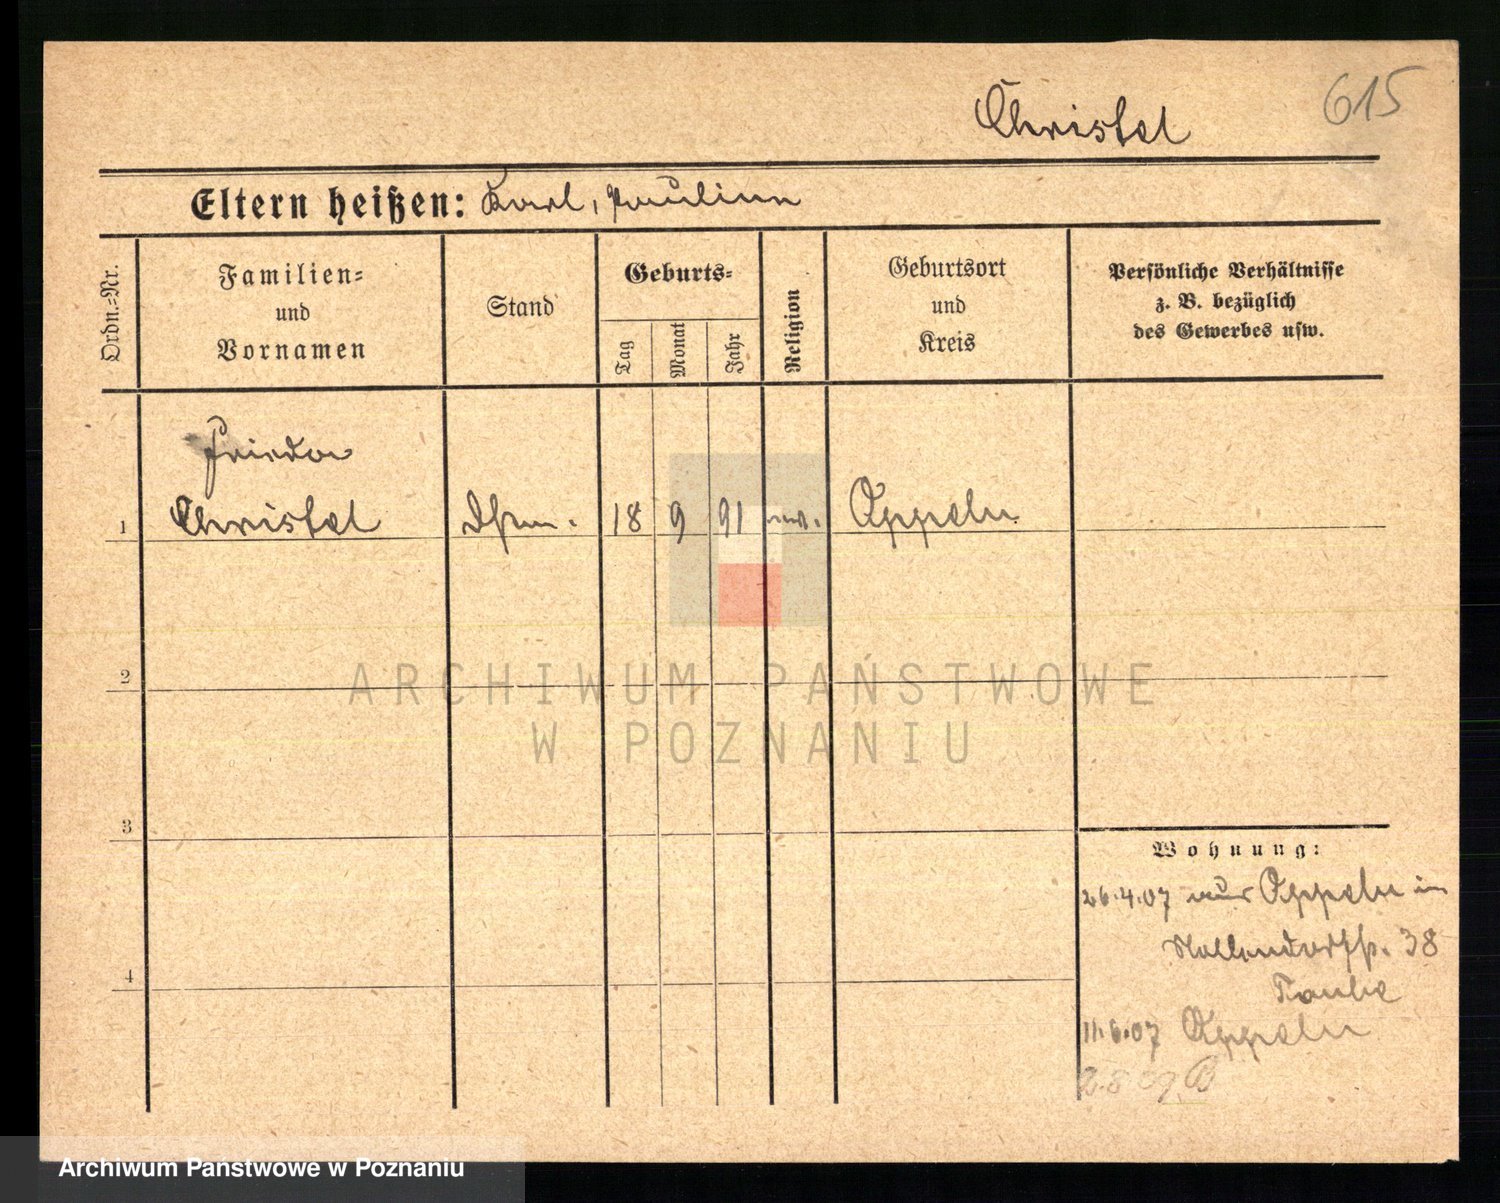 615
Christel
Eltern heißen: Karl, Pauline
Ordn.=Nr.
Familien=
und
Vornamen
Stand
Geburts=
Tag
Monat
Jahr
Religion
Geburtsort
und
Kreis
Persönliche Verhältnisse
z. B. bezüglich
des Gewerbes usw.
Frieda
1 Christel 18 9 91 Oppeln
2
3
4
Wohnung:
26.4.07 aus Oppeln in
38
Taube
11.6.07 Oppeln
ARCHIWUM PAŃSTWOWE
W POZNANIU
Archiwum Państwowe w Poznaniu